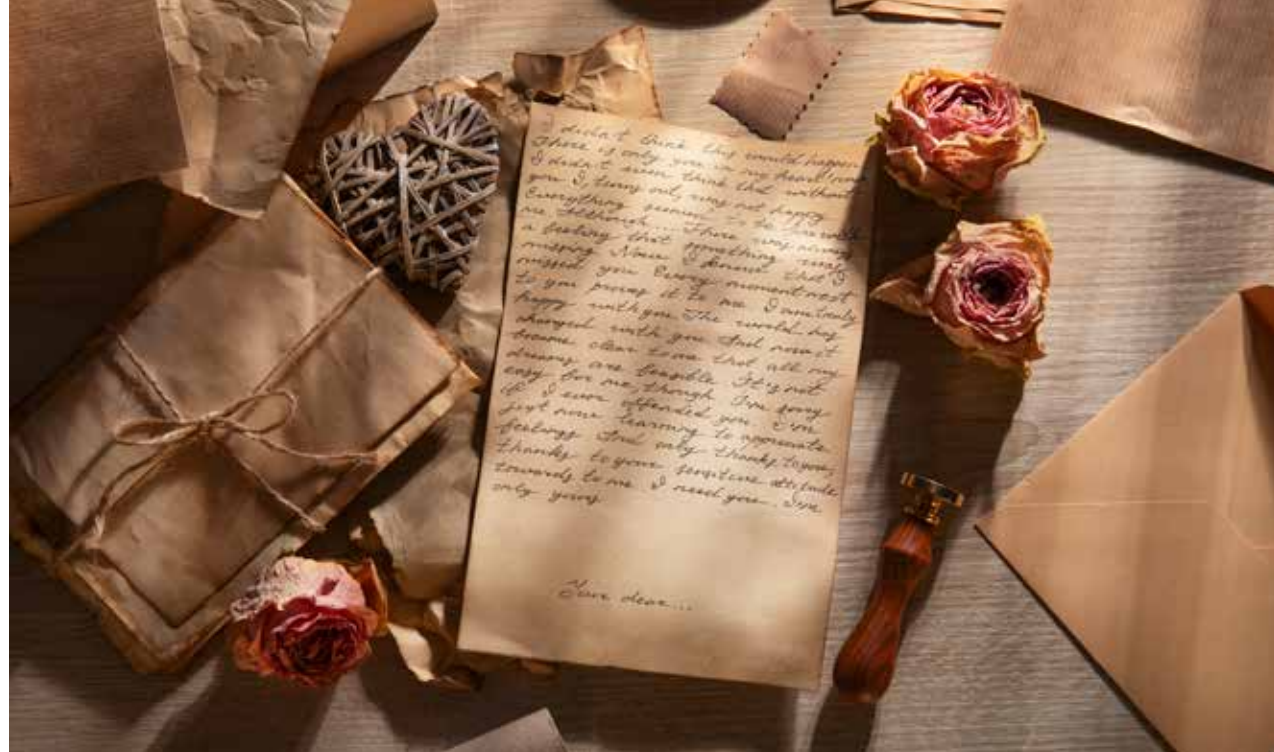 I didn't think this would happen
There is only you in my heart now
I didn't even think that without
you I, turns out, was not happy
Everything seemed to be in
me. Although... There was always
a feeling that something was
missing. Now I know that I
missed you Every moment next
to you proves it to me. I am truly
happy with you The world has
changed with you And now it
became clear to me that all my
dreams are feasible. It's not
easy for me, though I'm sorry
if I ever offended you. I'm
just now learning to appreciate
feelings And only thanks to you,
thanks to your sensitive attitude
towards to me. I need you. I'm
only yours
Your dear...